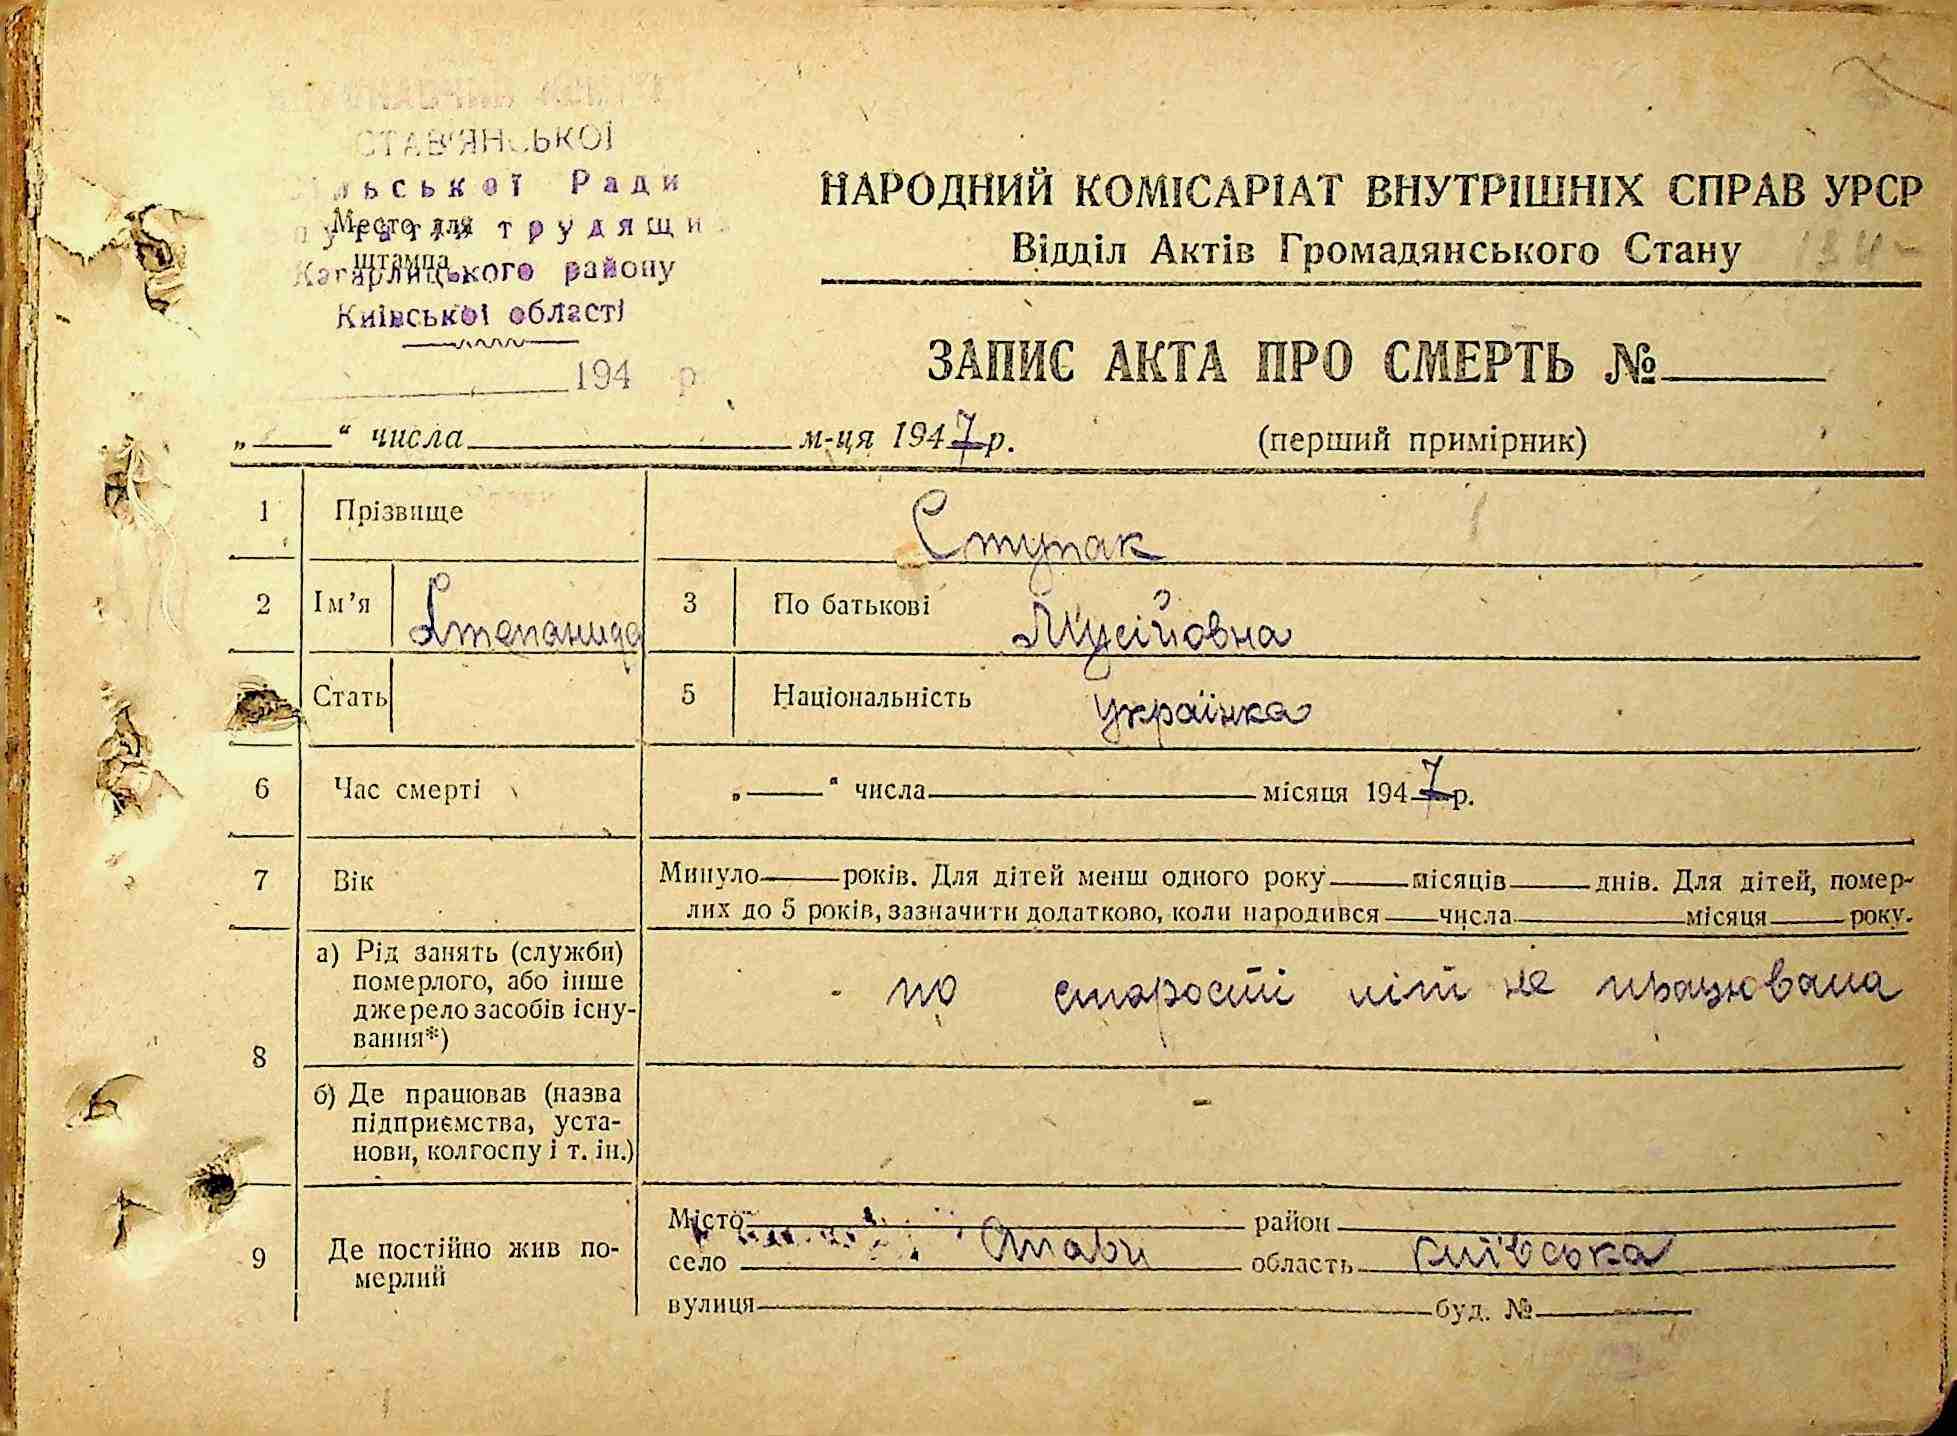 СТАВ'ЯНСЬКОЇ
сільської Ради
Место для
трудящих
штампа
Кагарлицького району
Київської області
194 р.
НАРОДНИЙ КОМІСАРІАТ ВНУТРІШНІХ СПРАВ УРСР
Відділ Актів Громадянського Стану
ЗАПИС АКТА ПРО СМЕРТЬ №
„ “ числа м-ця 1947 р. (перший примірник)
1 Прізвище Ступак
2 Ім’я Степанида 3 По батькові Мусійовна
Стать 5 Національність українка
6 Час смерті „ “ числа місяця 1947 р.
7 Вік Минуло років. Для дітей менш одного року місяців днів. Для дітей, помер-
лих до 5 років, зазначити додатково, коли народився числа місяця року.
8 а) Рід занять (служби) померлого, або інше джерело засобів існу-вання*) по старости літ не працювала
б) Де працював (назва підприємства, уста-нови, колгоспу і т. ін.) -
9 Де постійно жив по-мерлий
Місто район
село Стави область київська
вулиця буд. №